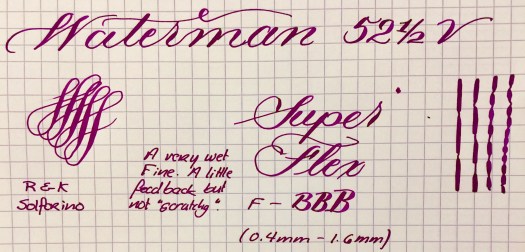 Waterman 52 1/2 V
Super
Flex
F - BBB
(0.4mm - 1.6mm)
A very wet
Fine. A little
feedback but
not "scratchy".
R & K
Solferino